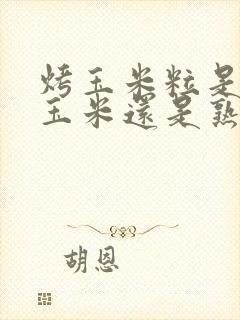 烤玉米粒是
玉米還是熟
胡恩